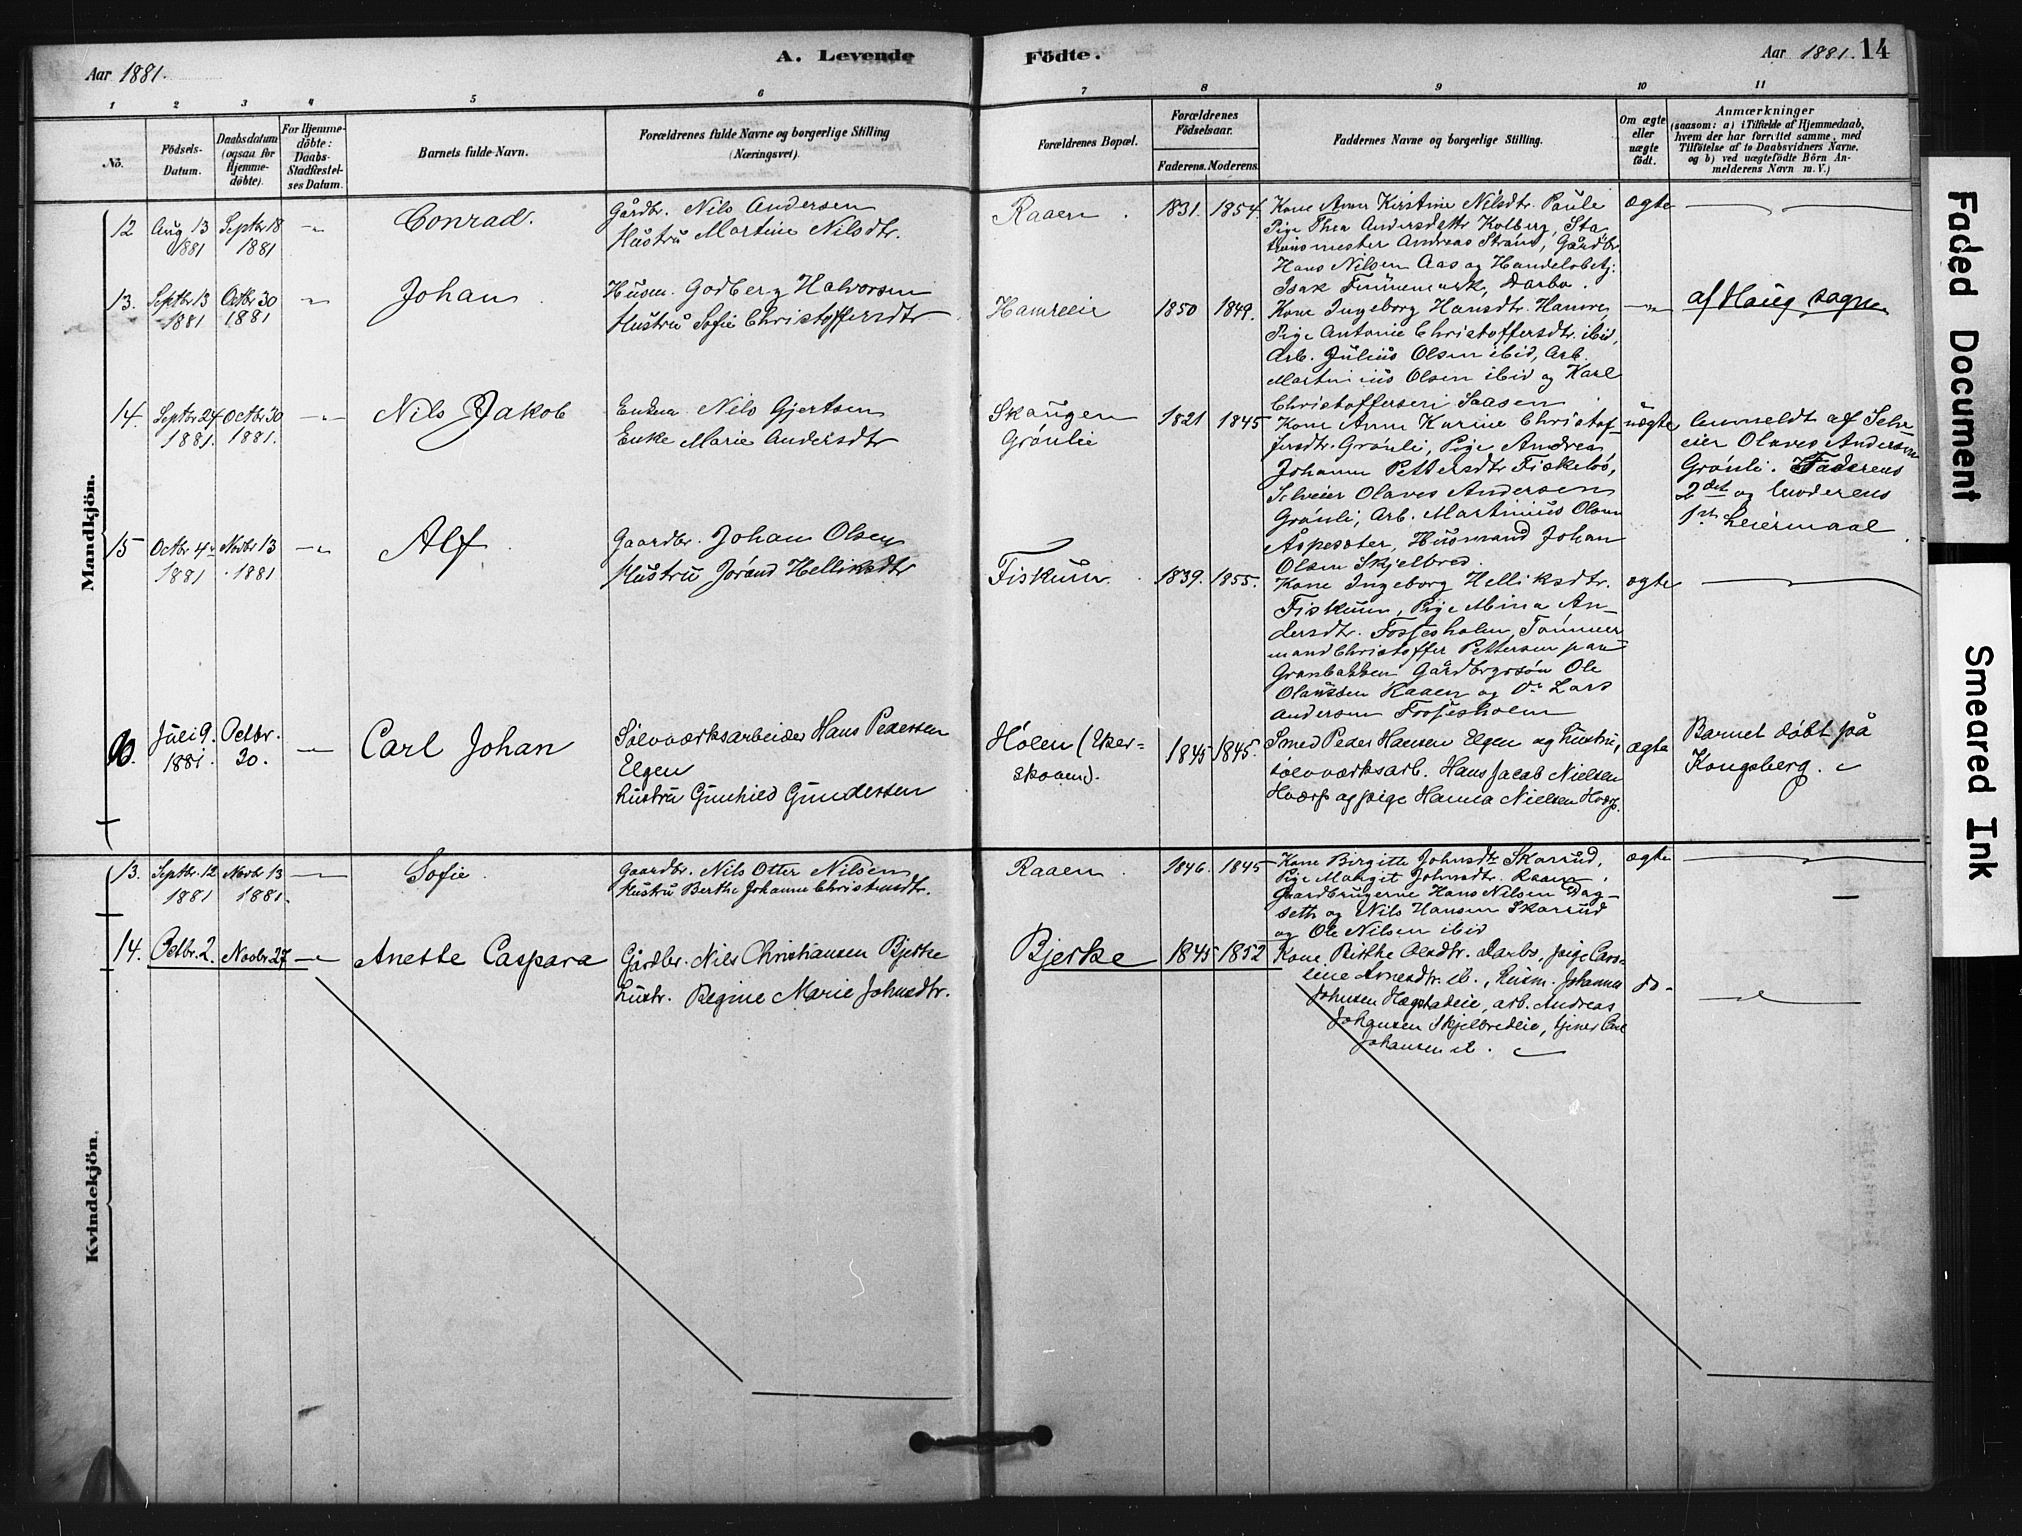 Aar 1881.
A. Levende
Födte.
Aar 1881. 14
1 2 3 4 5 6 7 8 9 10 11
No.
Födsels-
Datum.
Daabsdatum
(ogsaa for
Hjemme-
döbte).
For Hjemme-
döbte:
Daabs-
Stadfæstel-
ses Datum.
Barnets fulde Navn.
Forældrenes fulde Navne og borgerlige Stilling
(Næringsvei).
Forældrenes Bopæl.
Forældrenes
Födselsaar.
Faderens. Moderens.
Faddernes Navne og borgerlige Stilling.
Om ægte
eller
uægte
födt.
Anmærkninger
(saasom: a) i Tilfælde af Hjemmedaab,
hvem der har forrettet samme, med
Tilföielse af to Daabsvidners Navne,
og b) ved uægtefödte Börn An-
melderens Navn m. V.)
Mandkjön.
12
Aug 13
1881
Septbr 18
1881
Conrad.
Gårdbr. Nils Andersen
Hustru Martine Nilsdtr.
Raaen
1831. 1854.
Kone Anne Kirstine Nilsdtr. Paule
Pige Thea Andersdattr Kolberg, Sta
tionsmester Andreas Strøm, Gårdbr
Hans Nilsen Aas og Handelsbetj.
Isak Finnemark, Darbo.
ægte
13.
Septbr 13
1881
Octbr 30
1881
Johan
Husm. Godberg Halvorsen
Hustru Sofie Christoffersdtr
Hamreeie
1850 1849.
Kone Ingeborg Hansdtr. Hamre,
Pige Antonie Christoffersdtr. ibid,
Arb. Julius Olsen ibid, Arb.
Martinius Olsen ibid og Karl
Christoffersen Saasen
af Haug sogn
14.
Septbr 24
1881.
Octbr 30
1881.
Nils Jakob
Enkem. Nils Gjertsen
Enke Marie Andersdtr
Skaugen
Grønlie
1821 1845
Kone Anne Karine Christof-
fersdtr. Grønli, Pige Andrea
Johanne Pettersdtr Fiskebø,
Selveier Olaves Andersen
Grønli, Arb. Martinius Olsen
Åspesæter, Husmand Johan
Olsen Skjelbred.
uægte
Anmeldt af Selv-
eier Olaves Andersen
Grønli. Faderens
2det og Moderens
1ste Leiermaal
15
Octbr 4.
1881
Novbr 13
1881
Alf
Gaardbr. Johan Olsen
Hustru Jørand Helliksdtr
Fiskum
1839. 1855.
Kone Ingeborg Helliksdtr.
Fiskum, Pige Mina An-
dersdtr. Fossesholm, Tømmer-
mand Christoffer Pettersen paa
Granbakken, Gårdbrgrsøn Ole
Olaussen Raaen og do Lars
Andersen Fossesholm
ægte
Juli 9.
1881.
Octbr.
30.
Carl Johan
Sølvværksarbeider Hans Pedersen
Elgen
hustru Gunhild Gundersen
Hølen (Eker-
skoven).
1845 1845.
Smed Peder Hansen Elgen og hustru,
sølvværksarb. Hans Jacob Nielsen
Hværf og pige Hanna Nielsen Hværf.
ægte
Barnet døbt på
Kongsberg.
Kvindekjön.
13.
Septbr. 12
1881
Novbr 13
1881.
Sofie
Gaardbr. Nils Otter Nilsen
Hustru Berthe Johanne Christensdtr.
Raaen
1846. 1845
Kone Birgitte Johnsdtr Skarrud,
Pige Margit Johnsdtr. Raaen,
Gaardbrugerne Hans Nilsen Dag-
seth og Nils Hansen Skarrud
og Ole Nilsen ibid
ægte
14.
Octbr. 2.
Novbr. 27
Anette Caspara
Gårdbr. Nils Christiansen Bjerke
hustr. Regine Marie Johnsdtr.
Bjerke
1845 1852
Kone Birthe Olsdtr. Darbo, pige Caro-
line Arnesdtr. ib., husm. Johannes
Johnsen Hægstadeie, arb. Andreas
Johansen Skjelbredeie, tjener Carl
Johansen ib.
do-
Faded Document
Smeared Ink